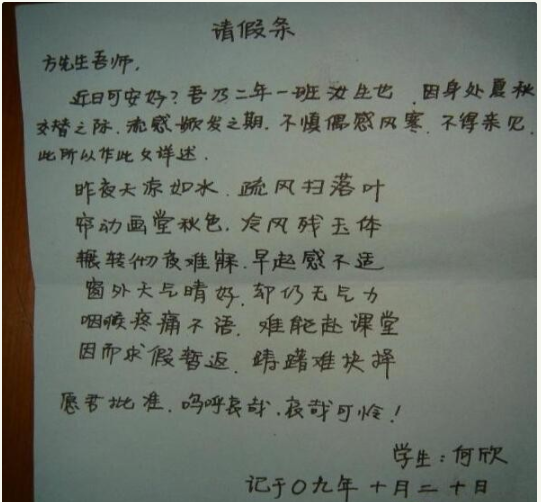 请假条
方先生吾师,
近日可安好?吾乃二年一班汝生也,因身处夏秋
交替之际,流感频发之期,不慎偶感风寒,不得亲见,
此所以作此文详述.
昨夜天凉如水,疏风扫落叶
帘动画堂秋色,冷风残玉体
辗转彻夜难寐,早起感不适
窗外天气晴好,却仍无气力
咽喉疼痛不语,难能赴课堂
因而求假暂返,踌躇难抉择
愿君批准,呜呼哀哉,哀哉可怜!
学生:何欣
记于〇九年十月二十日